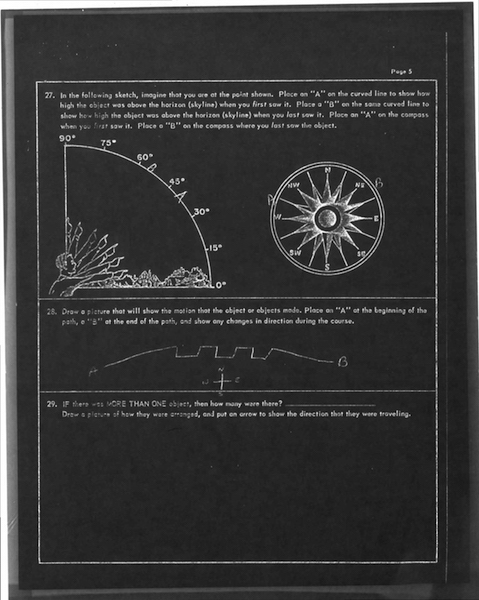 Page 5
27. In the following sketch, imagine that you are at the point shown. Place an "A" on the curved line to show how
high the object was above the horizon (skyline) when you first saw it. Place a "B" on the same curved line to
show how high the object was above the horizon (skyline) when you last saw it. Place an "A" on the compass
when you first saw it. Place a "B" on the compass where you last saw the object.
90°
75°
60°
B
45°
A
30°
15°
0°
N
NE
B
E
SE
S
SW
W
A
NW
28. Draw a picture that will show the motion that the object or objects made. Place an "A" at the beginning of the
path, a "B" at the end of the path, and show any changes in direction during the course.
A
B
N
W E
S
29. IF there was MORE THAN ONE object, then how many were there?
Draw a picture of how they were arranged, and put an arrow to show the direction that they were traveling.